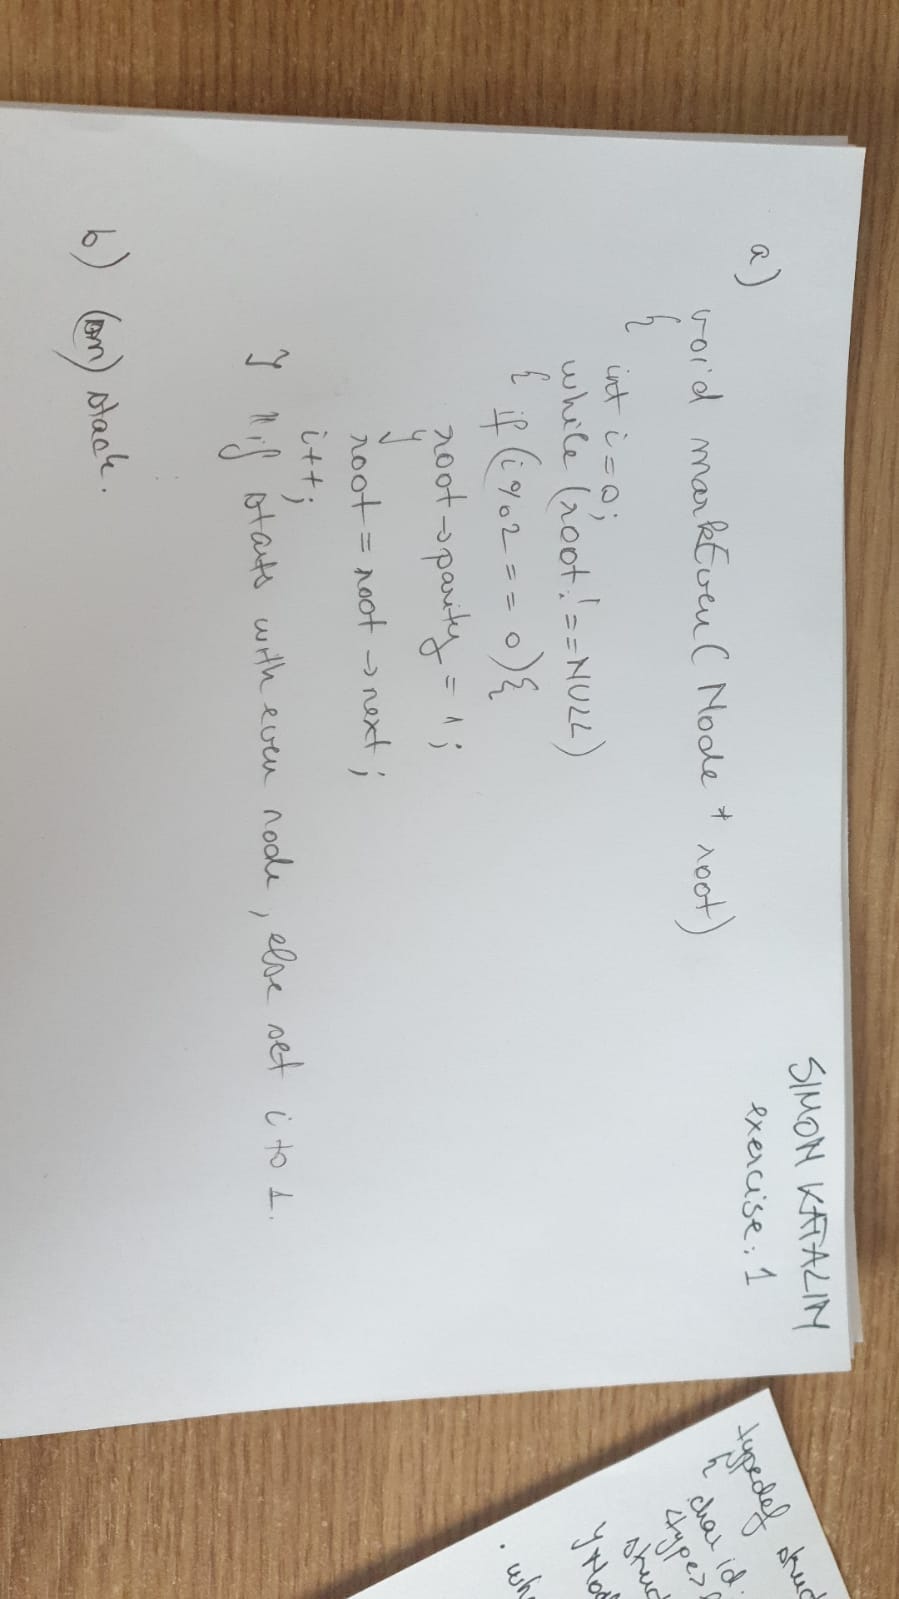 SIMON KATALIN
exercise: 1
a) void markEven(Node * root)
{
int i=0;
while (root!==NULL)
{ if(i%2==0){
root→parity = 1;
}
root=root→next;
i++;
} if starts with even node, else set i to 1.
b) stack.
typedef
{ char id.
<type>
}
. wh